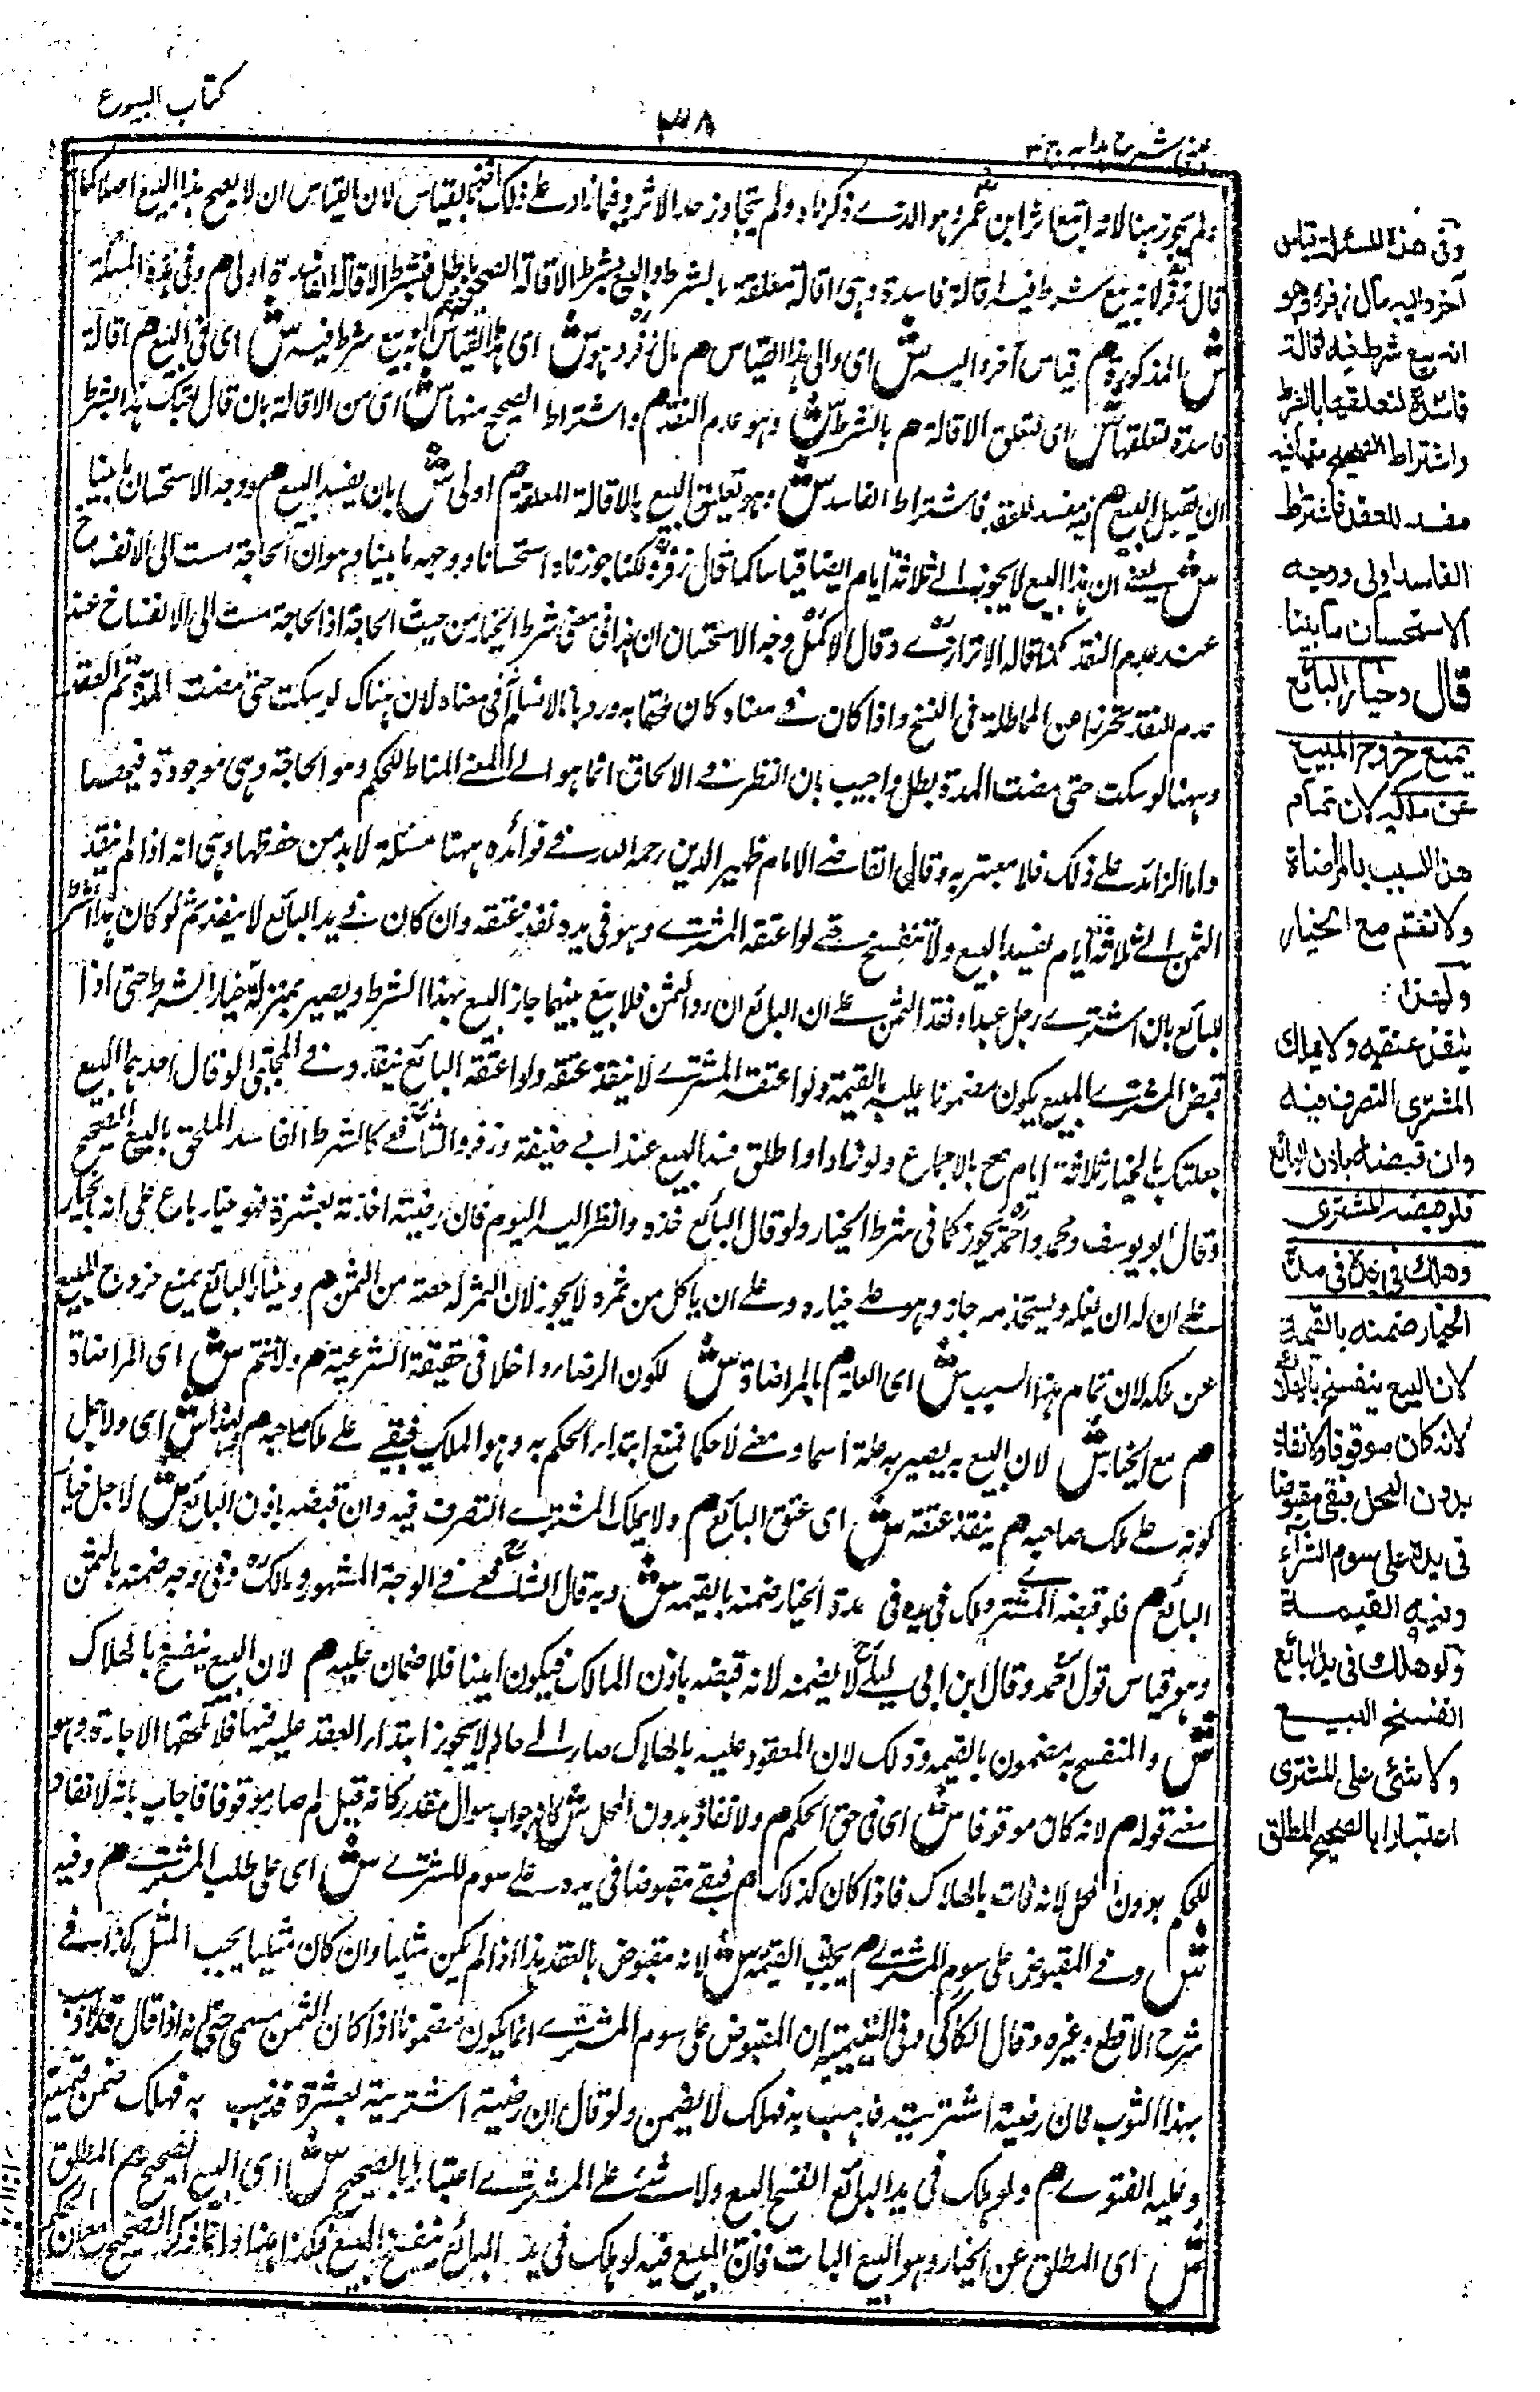 كتاب البيوع
٣٨
عينى شرح هدايه ج ٣
ولم يجوز هنا لانه اتبع اثر ابن عمر وهو الذي ذكرناه ولم يتجاوز حد الاثر وفيما زاد على ذلك اخذ بالقياس لان القياس ان لا يصح هذا البيع اصلا كما
قال زفر لانه بيع شرط فيه اقالة فاسدة وهى اقالة معلقة بالشرط والبيع بشرط الاقالة الصحيحة باطل فبشرط الاقالة الفاسدة اولى هم وفى هذه المسئلة
ش المذكورة هم قياس آخر واليه ش اى والى هذا القياس هم مال زفر وهو ش اى هذا القياس انه بيع شرط فيه ش اى فى البيع هم اقالة
فاسدة لتعلقها ش اى لتعلق الاقالة هم بالشرط ش وهو عدم النقد هم واشتراط الصحيح منها ش اى من الاقالة بان قال بعتك هذا بشرط
ان تقيل البيع هم فيه مفسد للعقد فاشتراط الفاسد ش وهو تعليق البيع بالاقالة المعلقة هم اولى ش بان يفسد البيع هم ووجه الاستحسان ما بينا
ش يعنى ان هذا البيع لا يجوز الى ثلاثة ايام ايضا قياسا كما قال زفر لكنا جوزناه استحسانا ووجهه ما بينا وهو ان الحاجة مست الى الانفساخ
عند عدم النقد كذا قاله الاترازى وقال الاكمل وجه الاستحسان ان هذا فى معنى شرط الخيار من حيث الحاجة اذ الحاجة مست الى الانفساخ عند
عدم النقد تحرزا عن المماطلة فى الفسخ واذا كان فى معناه كان ملحقا به ورد بانا لا نسلم انه فى معناه لان هناك لو سكت حتى مضت المدة تم العقد
وههنا لو سكت حتى مضت المدة بطل واجيب بان النظر فى الالحاق انما هو الى المعنى المناط للحكم وهو الحاجة وهى موجودة فيهما
واما الزائد على ذلك فلا معتبر به وقال القاضى الامام ظهير الدين رحمه الله فى فوائده ههنا مسئلة لا بد من حفظها وهى انه اذا لم ينقد
الثمن الى ثلاثة ايام يفسد البيع ولا ينفسخ حتى لو اعتقه المشترى وهو فى يده نفذ عتقه وان كان فى يد البائع لا ينفذ ثم لو كان هذا الشرط
للبائع بان اشترى رجل عبدا ونقد الثمن على ان البائع ان رد الثمن فلا بيع بينهما جاز البيع بهذا الشرط ويصير بمنزلة خيار الشرط حتى اذا
قبض المشترى المبيع يكون مضمونا عليه بالقيمة ولو اعتقه المشترى لا ينفذ عتقه ولو اعتقه البائع ينفذ وفى المجتبى لو قال احدهما البيع
جعلتك بالخيار ثلاثة ايام صح بالاجماع ولو زاد او اطلق فسد البيع عند ابى حنيفة وزفر والشافعى كالشرط الفاسد الملحق بالبيع الصحيح
وقال ابو يوسف ومحمد واحمد يجوز كما فى شرط الخيار ولو قال البائع خذه وانظر اليه اليوم فان رضيته اخذته بعشرة فهو خيار باع على انه بالخيار
على ان له ان يغله ويستخدمه جاز وهو على خياره وعلى ان ياكل من ثمره لا يجوز لان الثمر له حصة من الثمن هم وخيار البائع يمنع خروج المبيع
عن ملكه لان تمام هذا السبب ش اى العلة هم بالمراضاة ش لكون الرضاء داخلا فى حقيقة الشرعية هم ولا تتم ش اى المراضاة
هم مع الخيار ش لان البيع به يصير علة اسما ومعنى لا حكما فمنع ابتداء الحكم به وهو الملك فبقى على ملك صاحبه هم ولهذا ش اى ولاجل
كونه على ملك صاحبه هم ينفذ عتقه ش اى عتق البائع هم ولا يملك المشترى التصرف فيه وان قبضه باذن البائع ش لاجل خيار
البائع هم فلو قبضه المشترى وهلك فى يده فى مدة الخيار ضمنه بالقيمة ش وبه قال الشافعى فى الوجه المشهور ومالك وفى وجه ضمنه بالثمن
وهو قياس قول احمد وقال ابن ابى ليلى لا يضمنه لانه قبضه باذن المالك فيكون امينا فلا ضمان عليه هم لان البيع ينفسخ بالهلاك
ش والمنفسخ به مضمون بالقيمة وذلك لان المعقود عليه بالهلاك صار الى حالة لا يجوز ابتداء العقد عليه فيها فلا تلحقها الاجازة وهو
معنى قوله هم لانه كان موقوفا ش اى فى حق الحكم هم ولا نفاذ بدون المحل ش كانه جواب سوال مقدر كانه قيل لم صار موقوفا فاجاب بانه لا نفاذ
للحكم بدون المحل لانه فات بالهلاك فاذا كان كذلك هم فبقى مقبوضا فى يده على سوم الشرى ش اى على طلب المشترى هم وفيه
ش وفى المقبوض على سوم المشترى هم يجب القيمة ش لانه مقبوض بالعقد هذا اذا لم يكن مثليا وان كان مثليا يجب المثل كذا فى
شرح الاقطع وغيره وقال الكاكى وفى اليتيمة ان المقبوض على سوم المشترى انما يكون مضمونا اذا كان الثمن مسمى حتى انه اذا قال اذهب
بهذا الثوب فان رضيته اشتريته فذهب به فهلك لا يضمن ولو قال ان رضيته اشتريته بعشرة فذهب به فهلك ضمن قيمته
وعليه الفتوى هم ولو هلك فى يد البائع انفسخ البيع ولا شئ على المشترى اعتبارا بالصحيح ش اى البيع الصحيح هم المطلق
ش اى المطلق عن الخيار وهو البيع البات فان المبيع فيه لو هلك فى يد البائع ينفسخ البيع فكذا هنا وانما ذكر الصحيح مع ان الحكم
وفى هذه المسئلة قياس
آخر واليه مال زفر وهو
انه بيع شرط فيه اقالة
فاسدة لتعلقها بالشرط
واشتراط الصحيح منها فيه
مفسد للعقد فاشتراط
الفاسد اولى ووجه
الاستحسان ما بينا
قال وخيار البائع
يمنع خروج المبيع
عن ملكه لان تمام
هذا السبب بالمراضاة
ولا تتم مع الخيار
ولهذا
ينفذ عتقه ولا يملك
المشترى التصرف فيه
وان قبضه باذن البائع
فلو قبضه المشترى
وهلك فى يده فى مدة
الخيار ضمنه بالقيمة
لان البيع ينفسخ بالهلاك
لانه كان موقوفا ولا نفاذ
بدون المحل فبقى مقبوضا
فى يده على سوم الشراء
وفيه القيمة
ولو هلك فى يد البائع
انفسخ البيع
ولا شئ على المشترى
اعتبارا بالصحيح المطلق